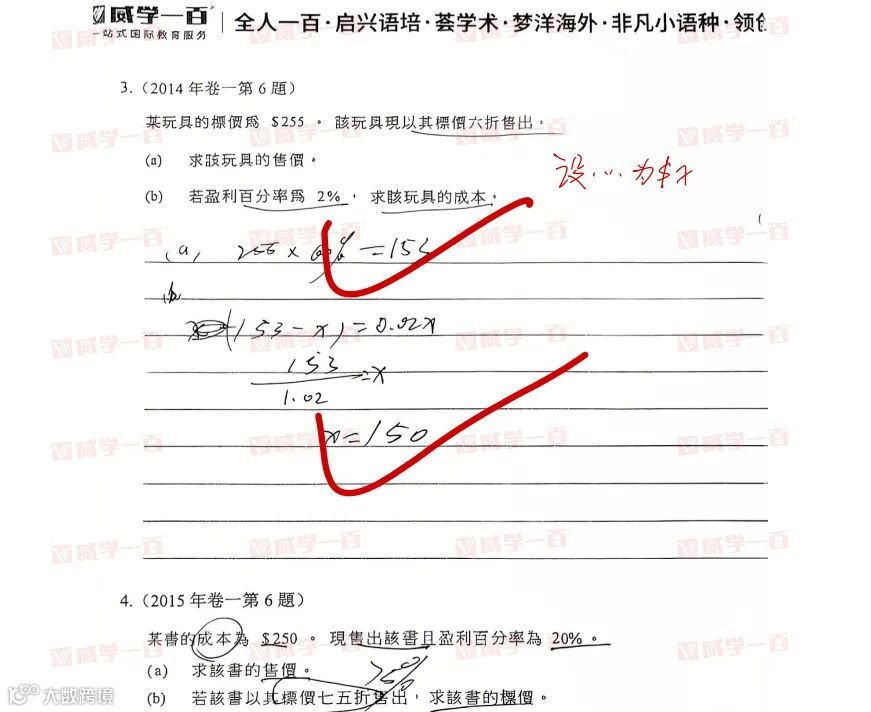 威学一百
一站式国际教育服务
全人一百·启兴语培·荟学术·梦洋海外·非凡小语种·领创
3.（2014 年卷一第 6 題）
某玩具的標價為 $255 。 該玩具現以其標價六折售出，
(a) 求該玩具的售價。
設…为$x
(b) 若盈利百分率為 2%， 求該玩具的成本。
(a) 255 × 60% = 153
(b)
(153 - x) = 0.02x
153
1.02
= x
x = 150
4.（2015 年卷一第 6 題）
某書的成本為 $250 。 現售出該書且盈利百分率為 20% 。
(a) 求該書的售價。
(b) 若該書以其標價七五折售出， 求該書的標價。
大数跨境